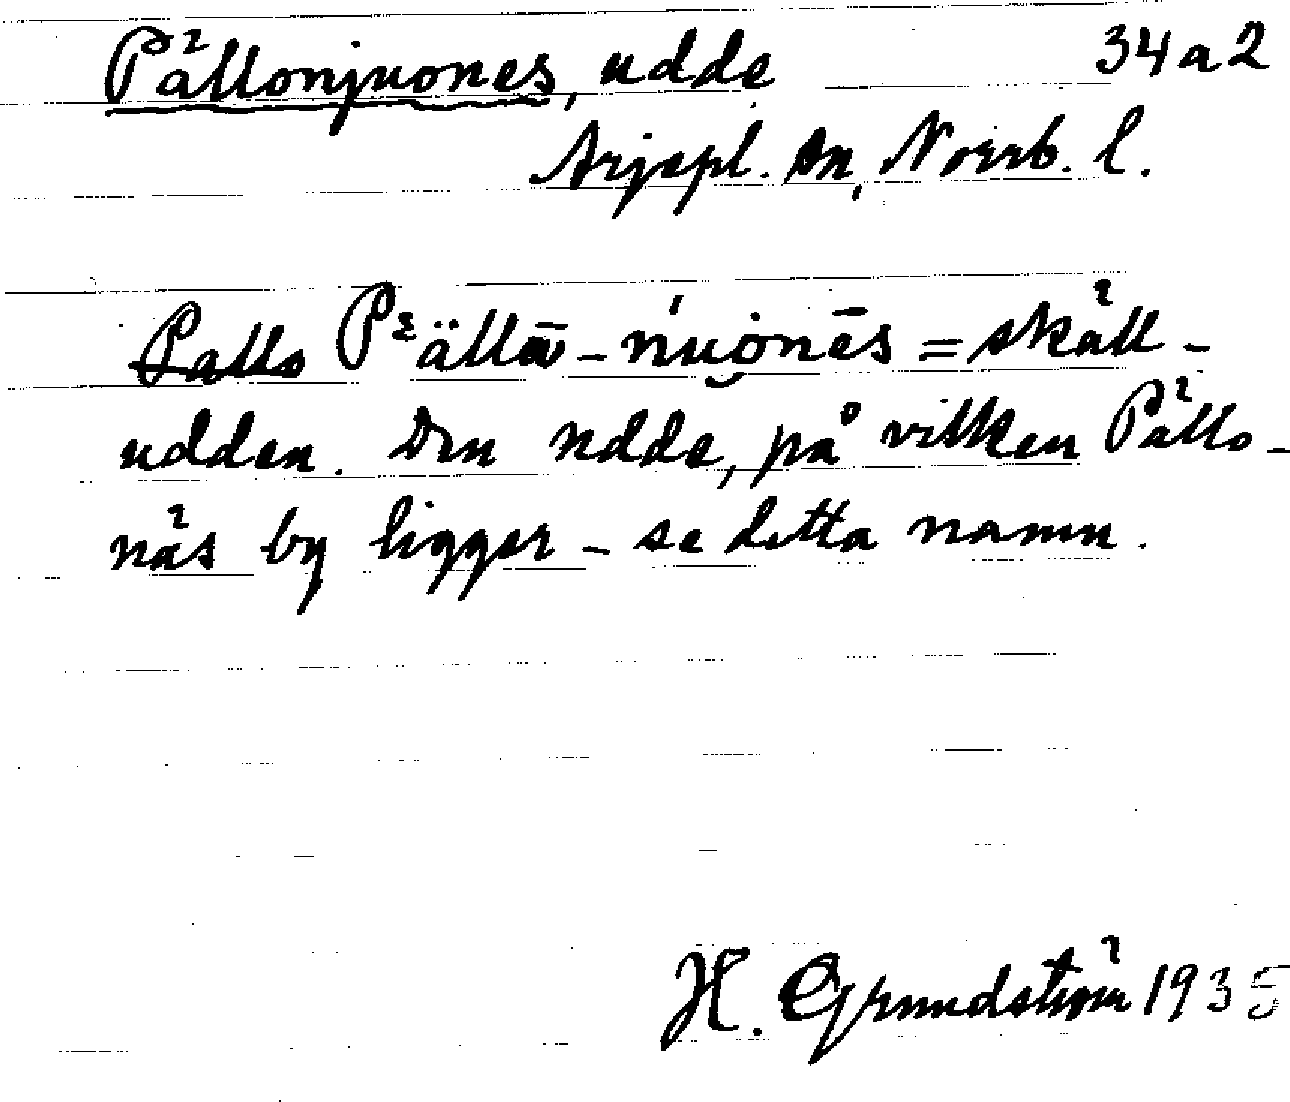 Pällonjuones, udde 34 a 2
Arjepl. sn, Norrb. l.
Pällo-njuones = skäll-
udden. Den udde, på vilken Pällo-
näs by ligger – se detta namn.
H. Grundström 1935